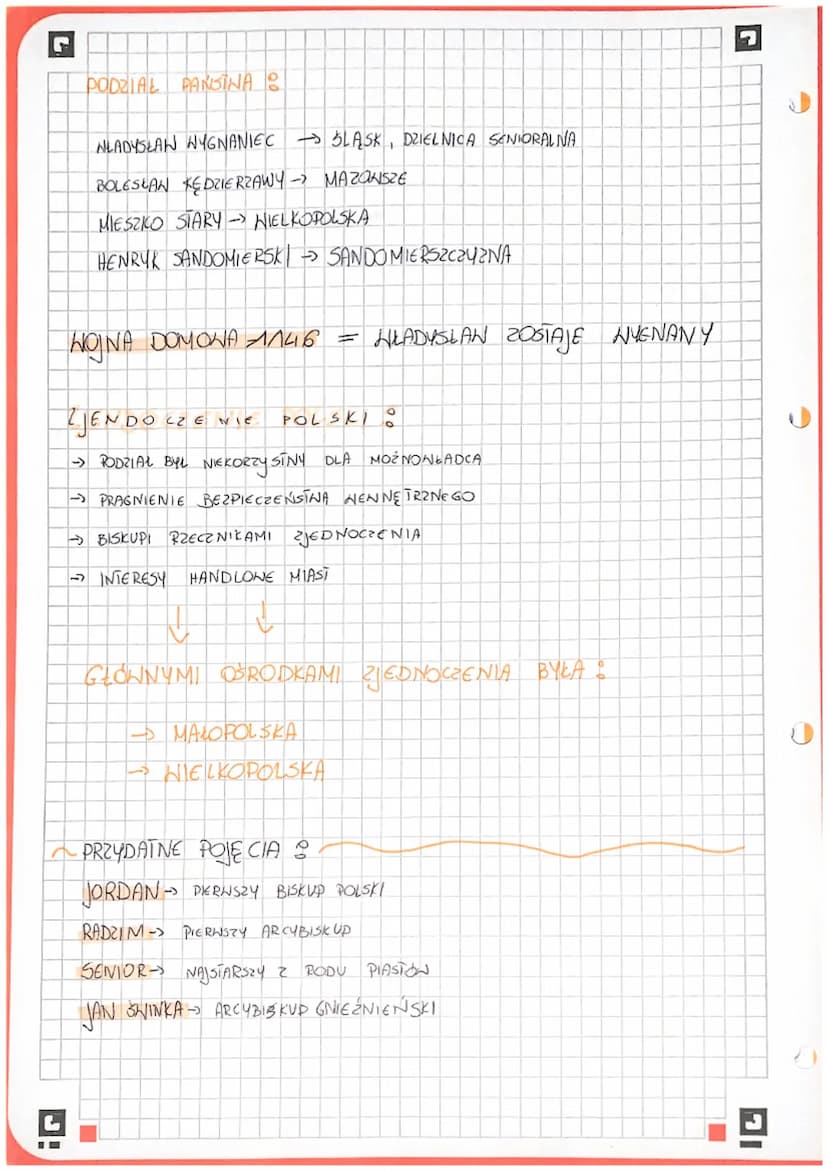 PODZIAŁ PAŃSTWA :
WŁADYSŁAW WYGNANIEC → ŚLĄSK, DZIELNICA SENIORALNA
BOLESŁAW KĘDZIERZAWY → MAZOWSZE
MIESZKO STARY → WIELKOPOLSKA
HENRYK SANDOMIERSKI → SANDOMIERSZCZYZNA
WOJNA DOMOWA 1146 = WŁADYSŁAW ZOSTAJE WYGNANY
ZJENDOCZENIE POLSKI :
→ PODZIAŁ BYŁ NIEKORZYSTNY DLA MOŻNOWŁADCĄ
→ PRAGNIENIE BEZPIECZEŃSTWA WEWNĘTRZNEGO
→ BISKUPI RZECZNIKAMI ZJEDNOCZENIA
→ INTERESY HANDLOWE MIAST
↓ ↓
GŁÓWNYMI OŚRODKAMI ZJEDNOCZENIA BYŁA :
→ MAŁOPOLSKA
→ WIELKOPOLSKA
~ PRZYDATNE POJĘCIA :
JORDAN → PIERWSZY BISKUP POLSKI
RADZIM → PIERWSZY ARCYBISKUP
SENIOR → NAJSTARSZY Z RODU PIASTÓW
JAN ŚWINKA → ARCYBISKUP GNIEŹNIEŃSKI